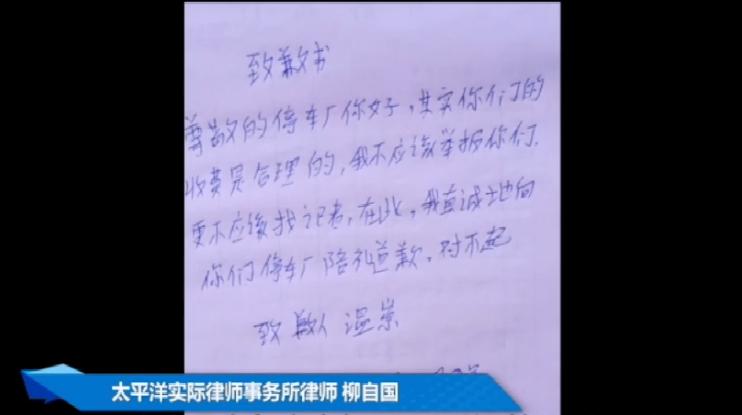 致歉书
尊敬的停车厂你好,其实你们的
收费是合理的,我不应该举报你们,
更不应该找记者,在此,我真诚地向
你们停车厂陪礼道歉,对不起
致歉人 温崇
太平洋实际律师事务所律师 柳自国